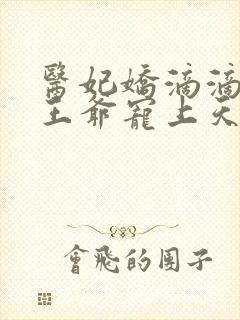 醫妃嬌滴滴
王爺寵上天
會飛的團子